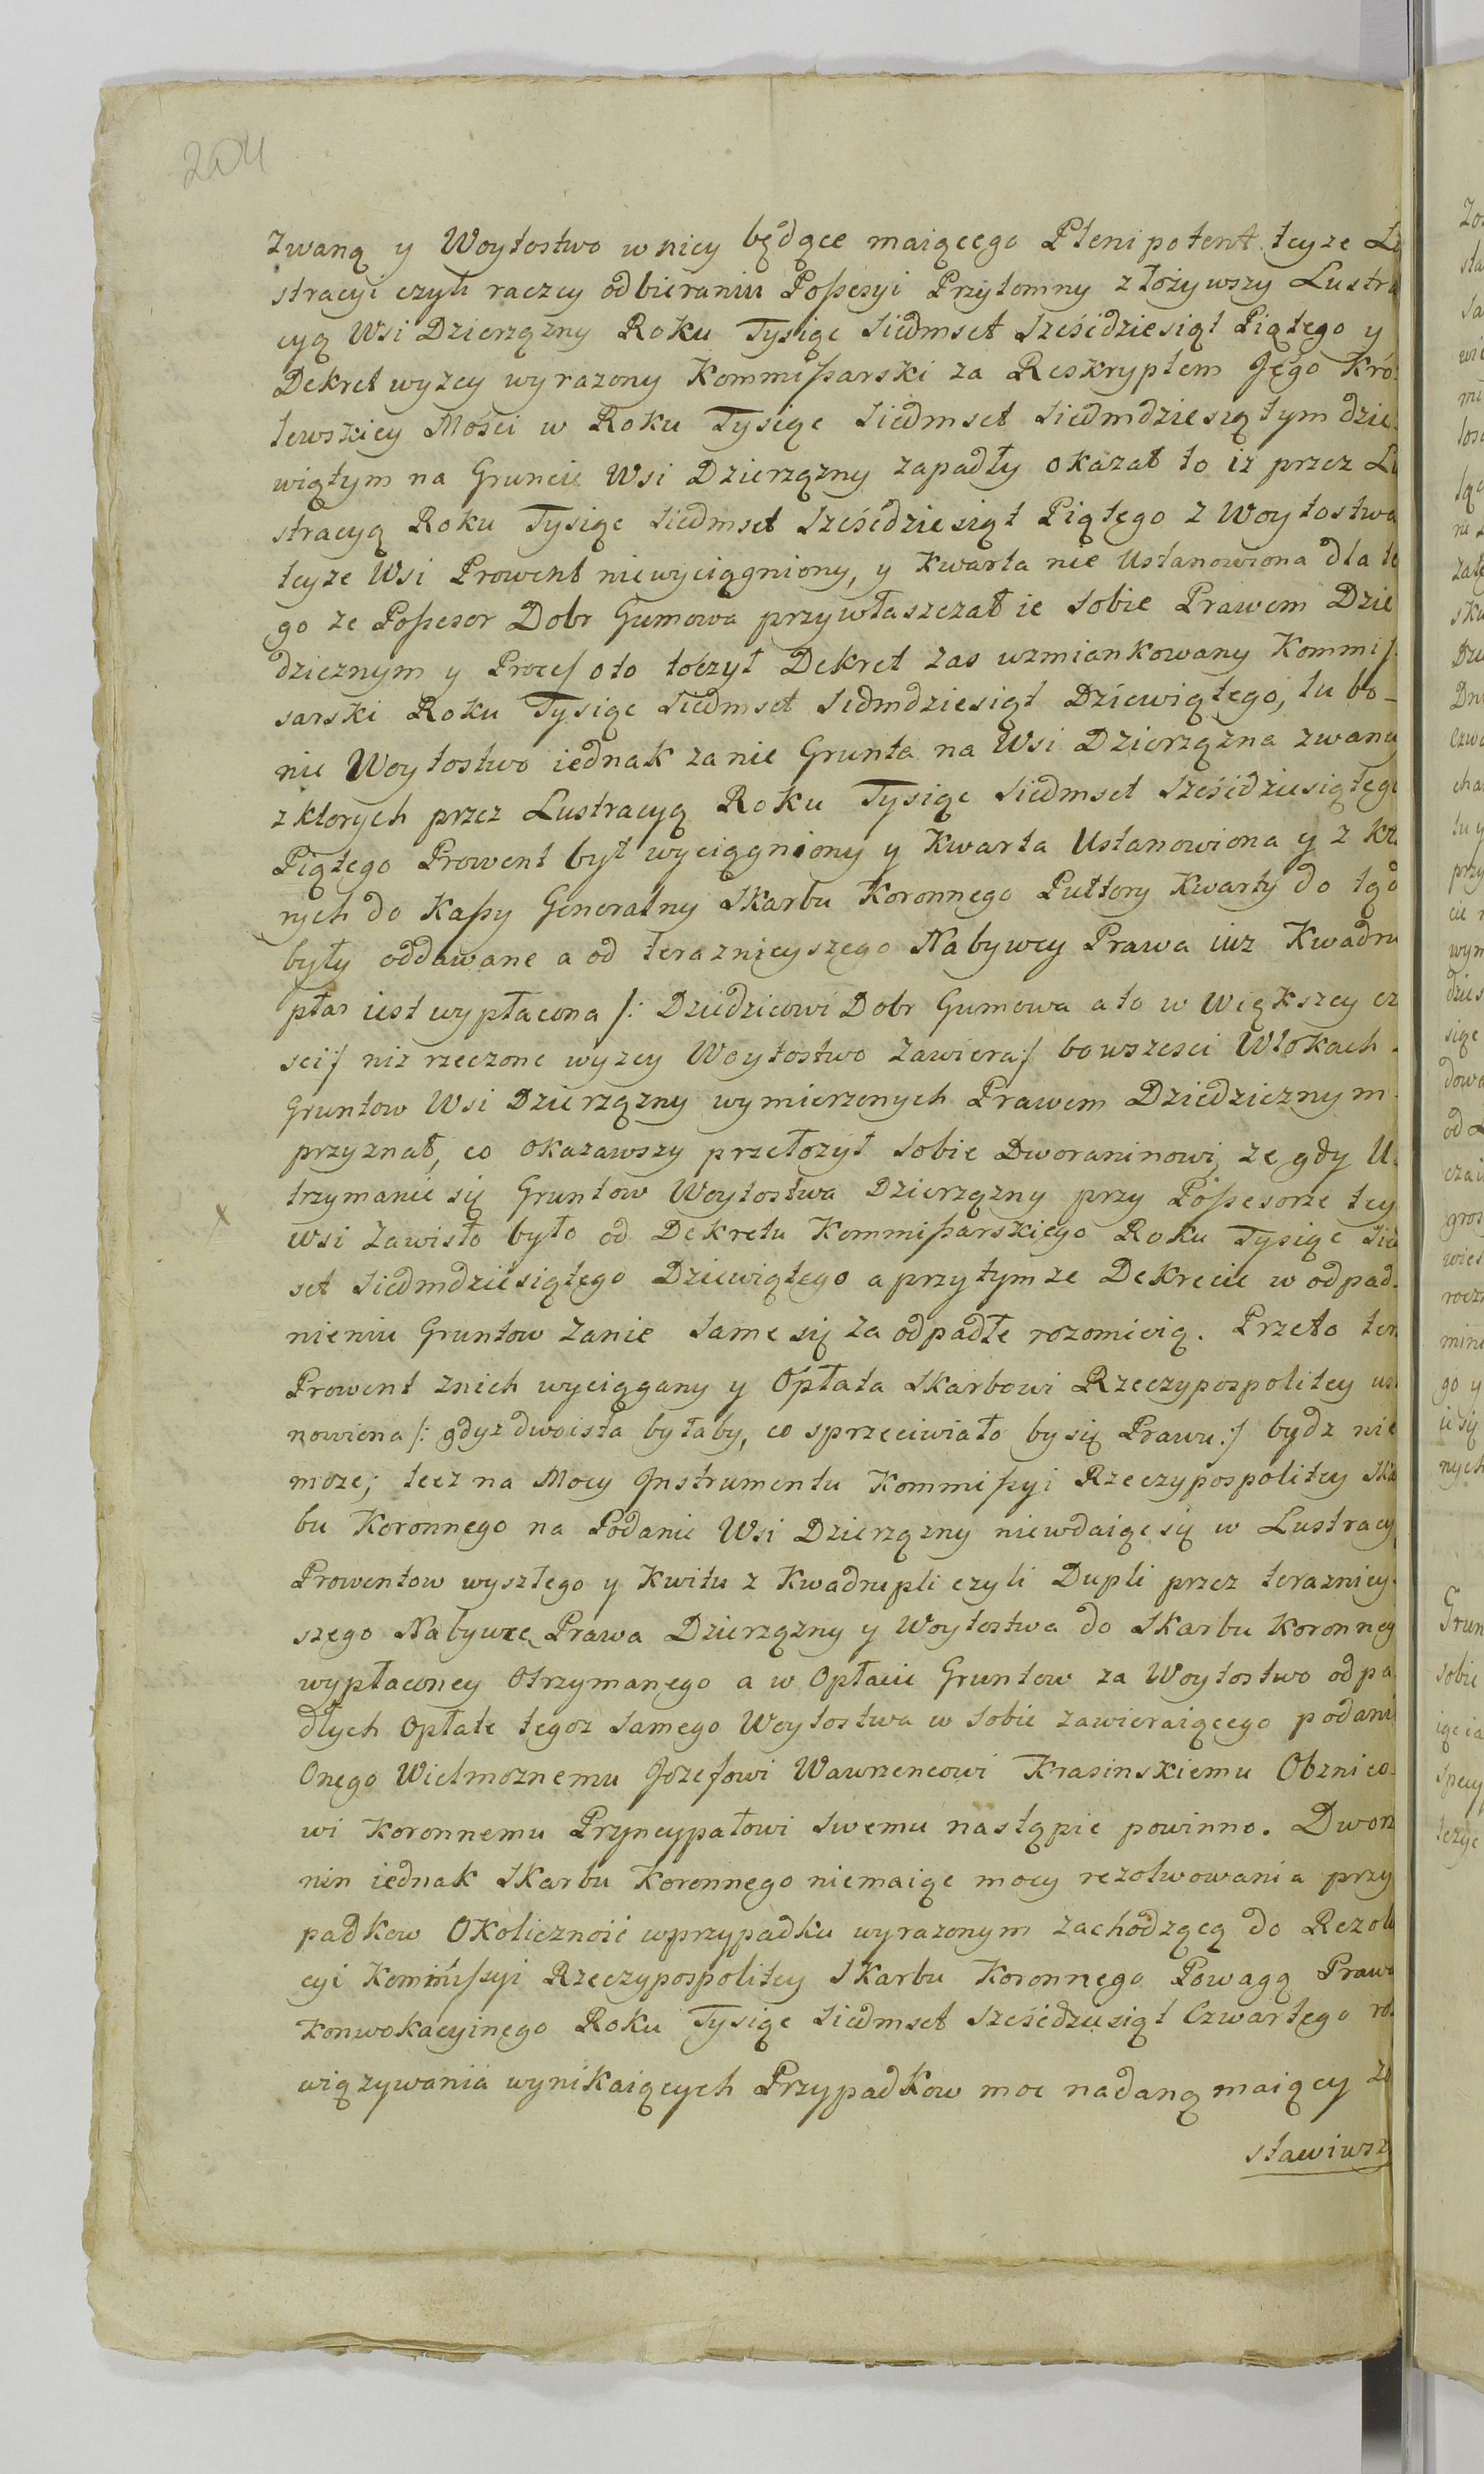 204
Zwaną y Woytostwo w niey będące maiącego Plenipotent teyze Lu
stracyi czyli raczey odbieraniu Possesyi Przytomny złożywszy Lustra
cyą Wsi Dzierzązny Roku Tysiąc Siedmset Sześćdziesiąt Piątego y
Dekret wyżey wyrazony Kommissarski za Reskryptem Jego Kró-
lewskiey Mości w Roku Tysiąc Siedmset Siedmdziesiątym dzie-
wiątym na Gruncie Wsi Dzierzązny zapadły okazał to iż przez Lu
stracyą Roku Tysiąc Siedmset Sześćdziesiąt Piątego z Woytostwa
teyze Wsi Prowent niewyciągniony, y Kwarta nie Ustanowiona dla te
go ze Possesor Dobr Gumowa przywłaszczał ie Sobie Prawem Dzie
dzicznym y Process oto toczył Dekret zas wzmiankowany Kommis
sarski Roku Tysiąc Siedmset Siedmdziesiąt Dziewiątego, lubo-
nie Woytostwo iednak zanie Grunta na Wsi Dzierzązna zwane
z ktorych przez Lustracyą Roku Tysiąc Siedmset Sześćdziesiątego
Piątego Prowent był wyciągniony y Kwarta Ustanowiona y z kto
rych do Kassy Generalny Skarbu Koronnego Puttory Kwarty do tąd
były oddawane a od teraznieyszego Nabywcy Prawa iuz Kwadru
pla iest wypłacona /: Dziedzicowi Dobr Gumowa a to w Większey czę
sci/ niż rzeczone wyzey Woytostwo Zawiera:/ bo wszesci Włokach
Gruntow Wsi Dzierzązny wymierzonych Prawem Dziedzicznym
przyznał, co okazawszy przełozył Sobie Dworaninowi, ze gdy U-
trzymanie się Gruntow Woytostwa Dzierzązny przy Possesorze tey
x
wsi Zawisło było od Dekretu Kommissarskiego Roku Tysiąc Sied
set Siedmdziesiątego Dziewiątego a przy tymze Dekrecie w odpad-
nieniu Gruntow Zanie Same się za odpadłe rozomieią. Przeto ten
Prowent znich wyciągany y Opłata Skarbowi Rzeczypospolitey us
nowiona /: gdyz dwoista byłaby, co sprzeciwiało by się Prawu:/ bydz nie
może; lecz na Mocy Instrumentu Kommissyi Rzeczypospolitey Skar
bu Koronnego na Podanie Wsi Dzierzązny niewdaiąc się w Lustracyą
Prowentow wyszłego y Kwitu z Kwadrupli czyli Dupli przez terazniey-
szego Nabywcę Prawa Dzierzązny y Woytostwa do Skarbu Koronneg
wypłaconey Otrzymanego a w Opłacie Gruntow za Woytostwo odpa
dłych Opłate tegoz Samego Woytostwa w Sobie zawieraiącego podani
Onego Wielmoznemu Jozefowi Wawrzencowi Krasinskiemu Obznico-
wi Koronnemu Pryncypałowi Swemu nastąpić powinno. Dwora
nin iednak Skarbu Koronnego niemaiąc mocy rezolwowania przy
padkow Okoliczność w przypadku wyrazonym zachodzącą do Rezolu
cyi Kommissyi Rzeczypospolitey Skarbu Koronnego Powagą Prawa
Konwokacyinego Roku Tysiąc Siedmset Sześćdziesiąt Czwartego roz
wiązywania wynikaiących Przypadkow moc nadaną maiącey Zo
stawiwszy